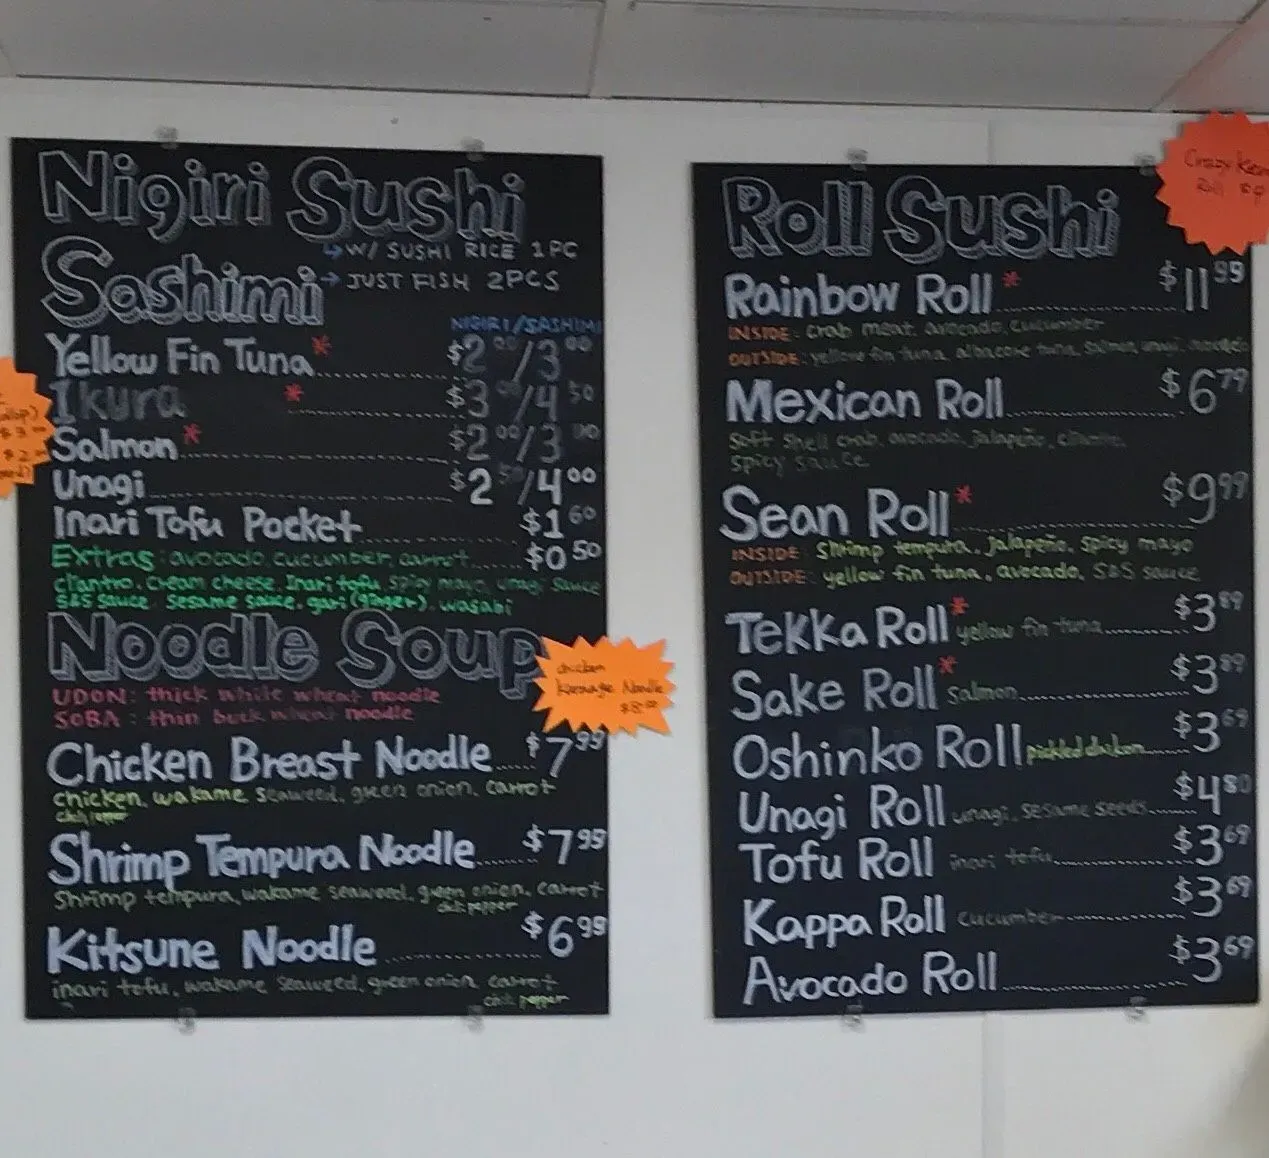 Nigiri Sushi
↳ W/ SUSHI RICE 1 PC
Sashimi → JUST FISH 2PCS
NIGIRI/SASHIMI
Yellow Fin Tuna* $2 00/3 00
Ikura * $3 /4 50
Salmon* $2 00/3 00
Unagi $2 50/4 00
Inari Tofu Pocket $1 60
Extras: avocado, cucumber, carrot $0 50
cilantro, cream cheese, Inari tofu, spicy mayo, unagi sauce
S&S sauce, sesame sauce, gari (ginger), wasabi
Noodle Soup
UDON: thick white wheat noodle
SOBA: thin buck wheat noodle
chicken
Noodle
Chicken Breast Noodle $7 99
chicken, wakame seaweed, green onion, carrot
chili pepper
Shrimp Tempura Noodle $7 99
Shrimp tempura, wakame seaweed, green onion, carrot
chili pepper
Kitsune Noodle $6 99
inari tofu, wakame seaweed, green onion, carrot
chili pepper
Roll Sushi
Crazy
Roll
Rainbow Roll* $11 99
INSIDE: crab meat, avocado, cucumber
OUTSIDE: yellow fin tuna, albacore tuna, salmon, unagi, avocado
Mexican Roll $6 79
Soft shell crab, avocado, jalapeño, cilantro,
spicy sauce
Sean Roll* $9 99
INSIDE: Shrimp tempura, jalapeño, spicy mayo
OUTSIDE: yellow fin tuna, avocado, S&S sauce
Tekka Roll* yellow fin tuna $3 89
Sake Roll* Salmon $3 89
Oshinko Roll pickled daikon $3 69
Unagi Roll unagi, sesame seeds $4 80
Tofu Roll inari tofu $3 69
Kappa Roll cucumber $3 69
Avocado Roll $3 69